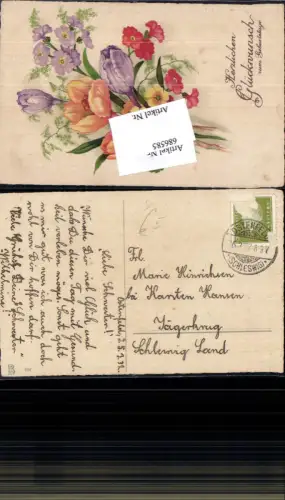 Herzlichen
Glückwunsch
zum Geburtstage
Artikel Nr.
686585
Artikel Nr.
Ostenfeld, 2.8.32
Liebe Schwester!
Wünsche Dir viel Glück und
daß Du diesen Tag mit Gesund-
heit verleben mögest. Sonst geht
es mir gut, was ich auch noch
wohl von Dir hoffen darf.
Viele Grüße Deine Schwester
Frl.
Marie Hinrichsen
bei Karsten Hansen
Jägerkrug
Schleswig Land
SCHLESWIG